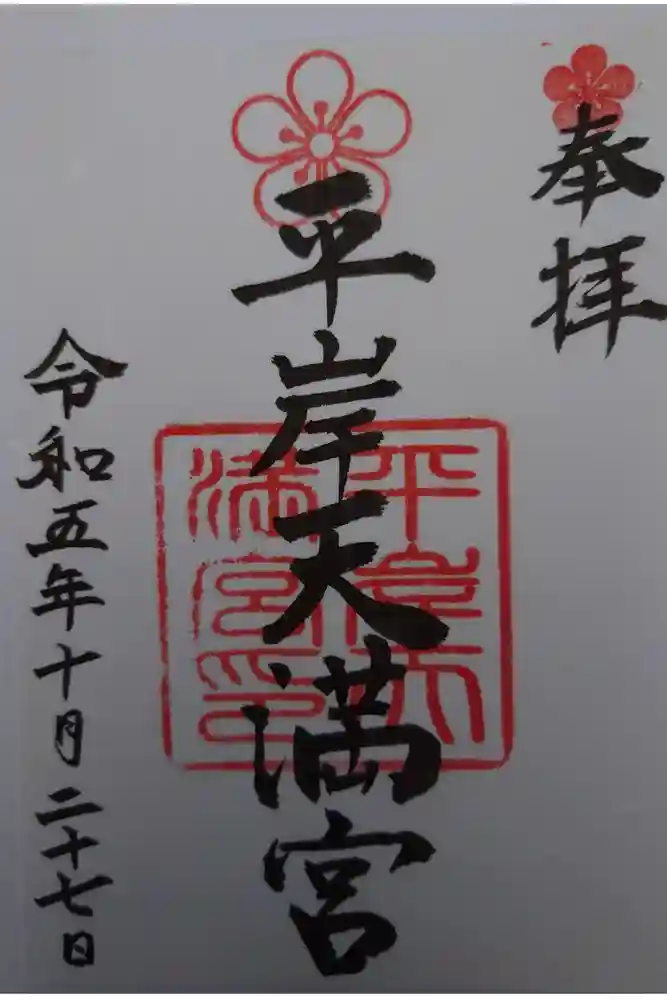 奉拝
平岸天満宮
平岸天
満宮印
令和五年十月二十七日